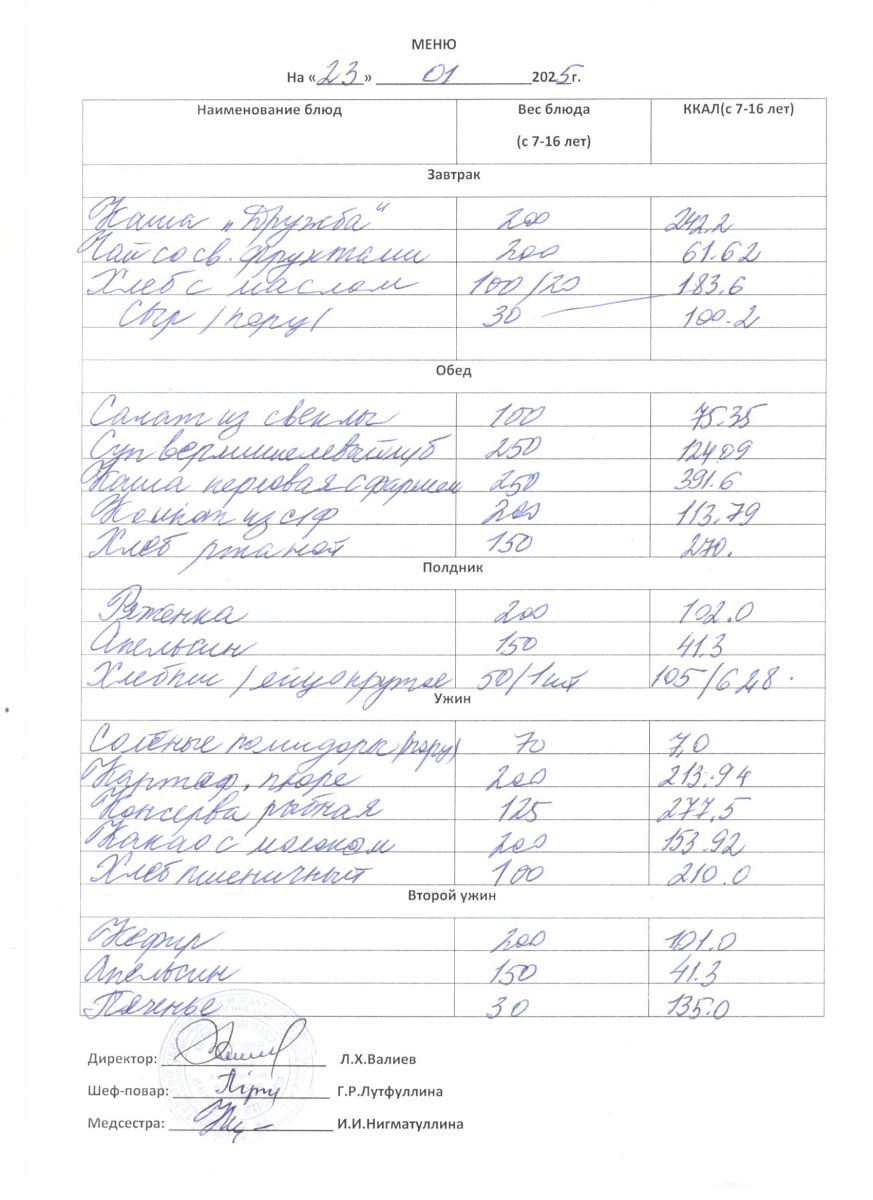 МЕНЮ
На «23» 01 2025г.
Наименование блюд Вес блюда (с 7-16 лет) ККАЛ(с 7-16 лет)
Завтрак
Каша „Дружба“ 200 242,2
Чай со св. фруктами 200 61.62
Хлеб с маслом 100/20 183.6
Сыр /порц/ 30 100.2
Обед
Салат из свеклы 100 75.35
Суп вермишелевый 250 124.09
Каша перловая с фаршем 250 391.6
Компот из с/ф 200 113.79
Хлеб ржаной 150 270.
Полдник
Ряженка 200 102.0
Апельсин 150 41.3
Хлеб пш / яйцо круглое 50/1шт 105/62,8.
Ужин
Солёные помидоры (порц) 70 7,0
Картоф. пюре 200 213.94
Консерва рыбная 125 277,5
Какао с молоком 200 153.92
Хлеб пшеничный 100 210.0
Второй ужин
Кефир 200 101.0
Апельсин 150 41.3
Печенье 30 135.0
Директор: Л.Х.Валиев
Шеф-повар: Г.Р.Лутфуллина
Медсестра: И.И.Нигматуллина